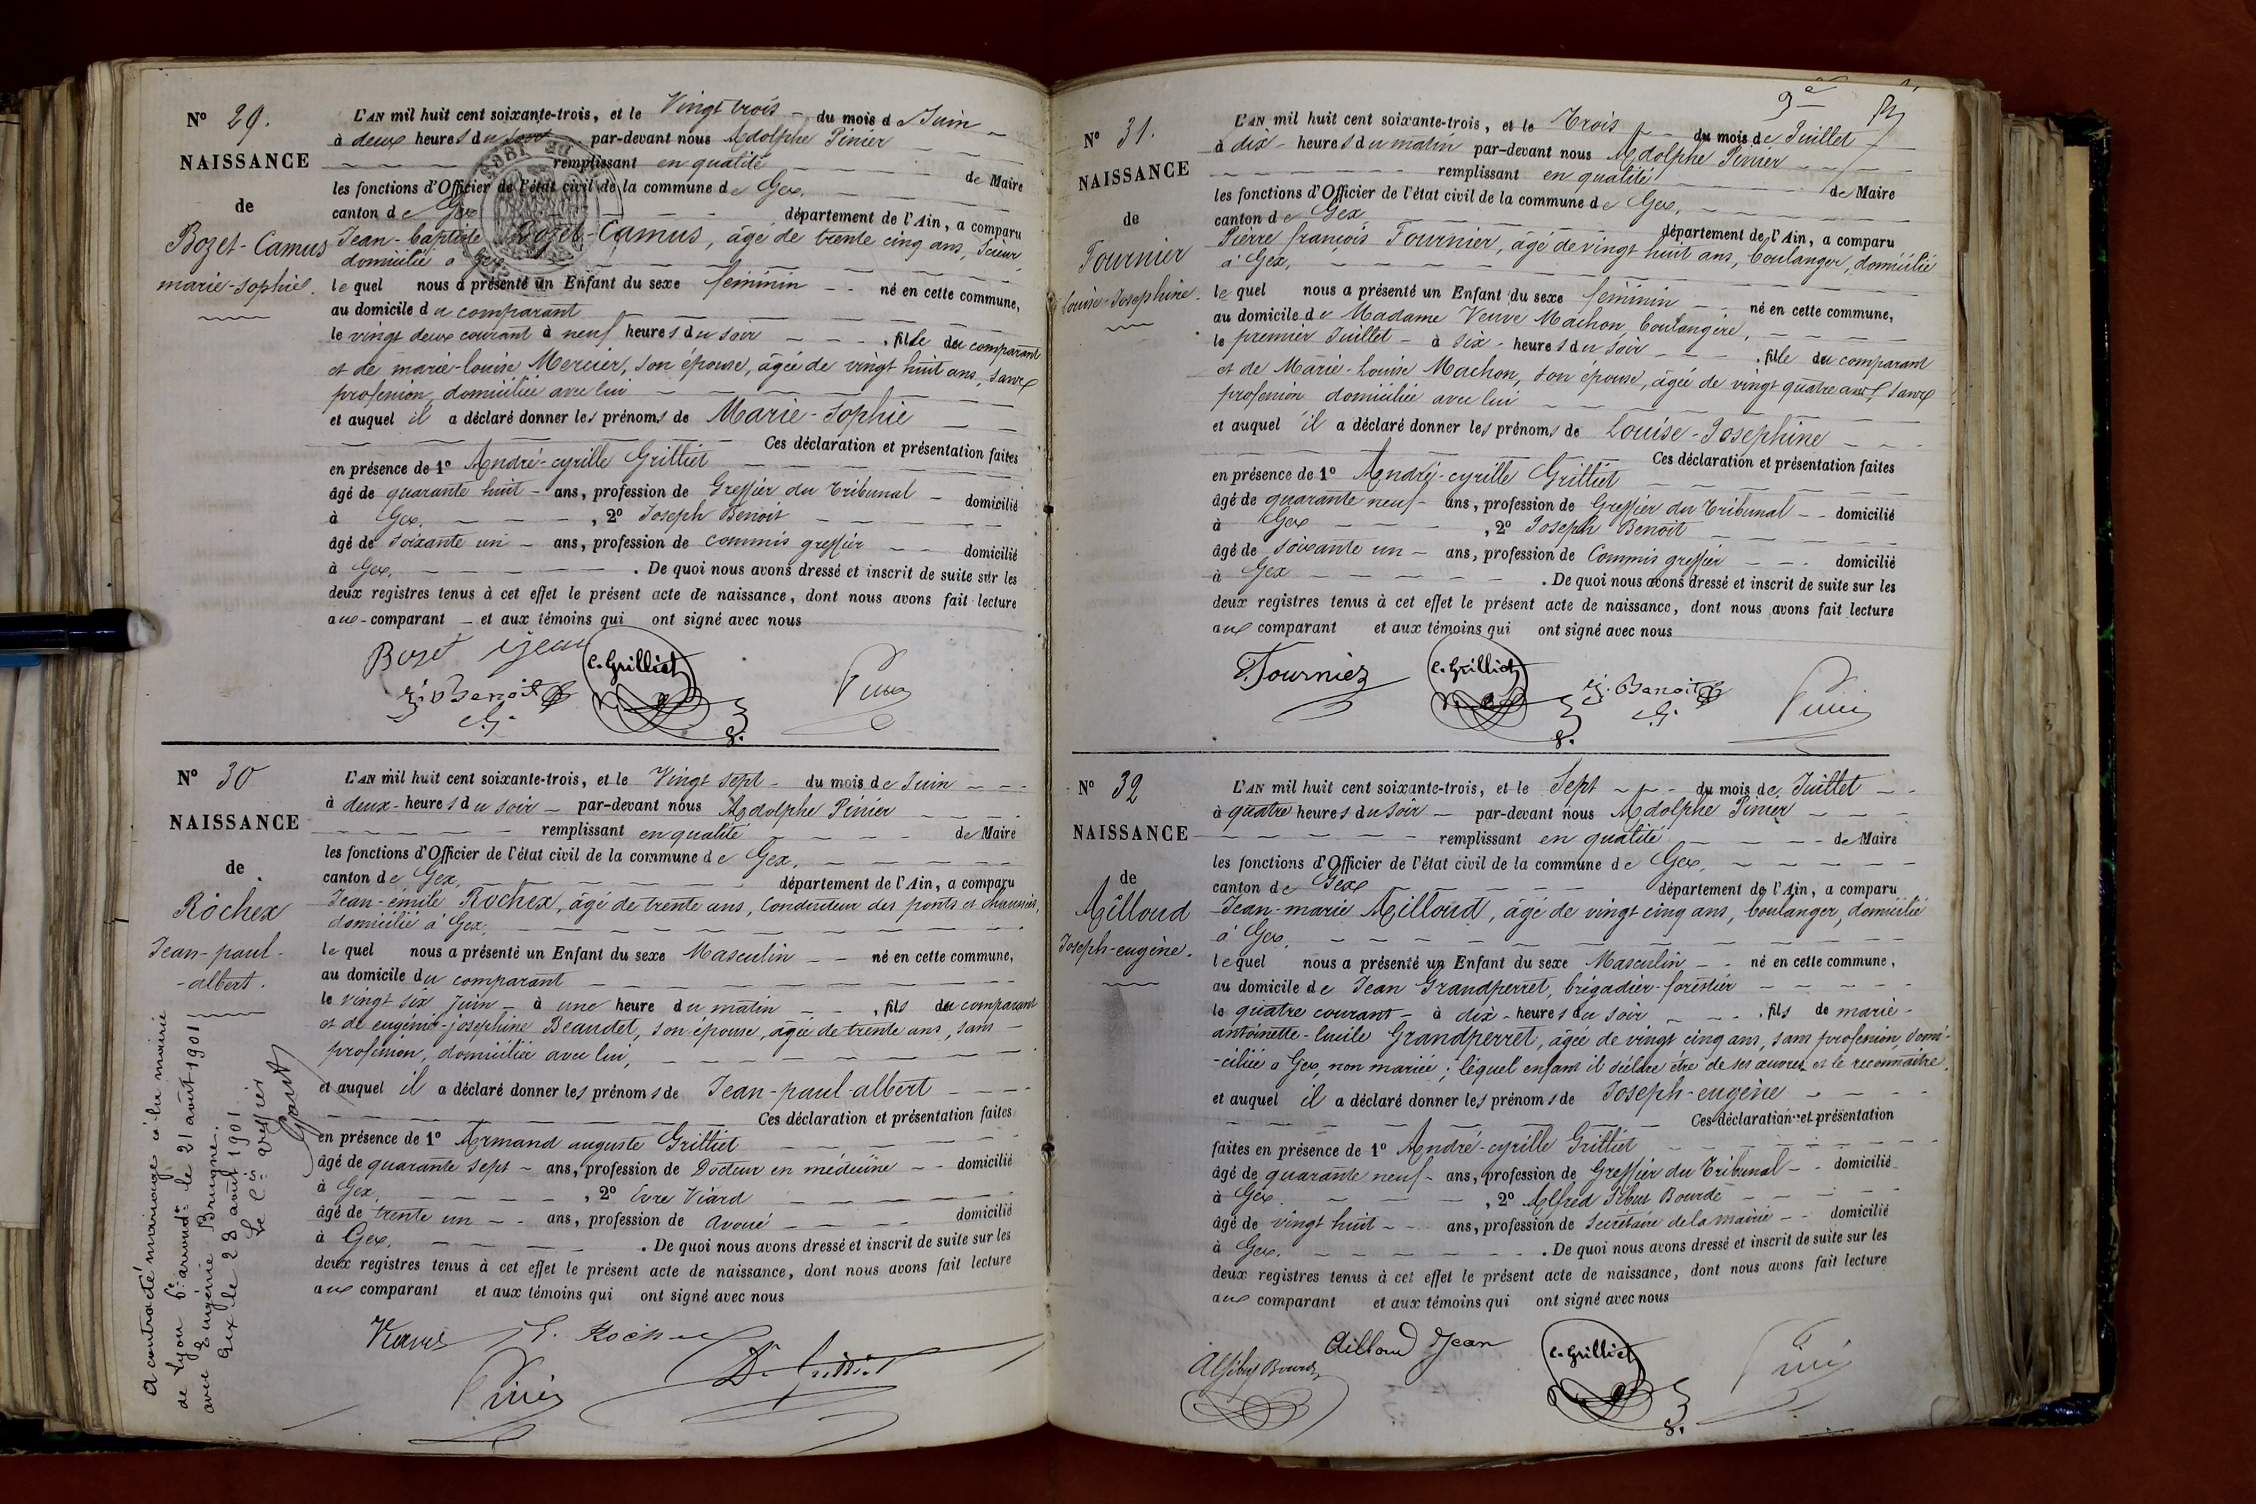 N° 29.
NAISSANCE
de
Bozet-Camus
marie-sophie.
L'AN mil huit cent soixante-trois, et le Vingt trois du mois de Juin
à deux heures du soir par-devant nous Adolphe Pinier
remplissant en qualité de Maire
les fonctions d'Officier de l'état civil de la commune de Gex,
canton de Gex département de l'Ain, a comparu
Jean-baptiste Bozet-Camus, âgé de trente cinq ans, Scieur,
domicilié à Gex
lequel nous a présenté un Enfant du sexe féminin né en cette commune,
au domicile du comparant
le vingt deux courant à neuf heures du soir, fille du comparant
et de marie-louise Mercier, son épouse, âgée de vingt huit ans, sans
profession, domiciliée avec lui
et auquel il a déclaré donner les prénoms de Marie-Sophie
Ces déclaration et présentation faites
en présence de 1° André-cyrille Grilliet
âgé de quarante huit ans, profession de Greffier du Tribunal domicilié
à Gex, 2° Joseph Benoit
âgé de soixante un ans, profession de commis greffier domicilié
à Gex. De quoi nous avons dressé et inscrit de suite sur les
deux registres tenus à cet effet le présent acte de naissance, dont nous avons fait lecture
aux comparant et aux témoins qui ont signé avec nous
Bozet Jean C. Grilliet
J. Benoit Pinier
c. g.
N° 30
NAISSANCE
de
Rochex
Jean-paul-
-albert.
A contracté mariage à la mairie
de Lyon 6e arrondt le 21 août 1901
avec Eugénie Brugne.
Gex le 28 août 1901
Le Cis greffier
L'AN mil huit cent soixante-trois, et le Vingt sept du mois de Juin
à deux heures du soir par-devant nous Adolphe Pinier
remplissant en qualité de Maire
les fonctions d'Officier de l'état civil de la commune de Gex,
canton de Gex, département de l'Ain, a comparu
Jean-émile Rochex, âgé de trente ans, Conducteur des ponts et chaussées,
domicilié à Gex,
lequel nous a présenté un Enfant du sexe Masculin né en cette commune,
au domicile du comparant
le vingt six juin à une heure du matin, fils du comparant
et de eugénie-josephine Beaudet, son épouse, âgée de trente ans, sans
profession, domiciliée avec lui,
et auquel il a déclaré donner les prénoms de Jean-paul-albert
Ces déclaration et présentation faites
en présence de 1° Armand auguste Grilliet
âgé de quarante sept ans, profession de Docteur en médecine domicilié
à Gex, 2° Evre Viard
âgé de trente un ans, profession de avoué domicilié
à Gex. De quoi nous avons dressé et inscrit de suite sur les
deux registres tenus à cet effet le présent acte de naissance, dont nous avons fait lecture
aux comparant et aux témoins qui ont signé avec nous
E. Rochex
Pinier Dr Grilliet
N° 31.
NAISSANCE
de
Fournier
Louise-Josephine.
L'AN mil huit cent soixante-trois, et le Trois du mois de Juillet
à dix heures du matin par-devant nous Adolphe Pinier
remplissant en qualité de Maire
les fonctions d'Officier de l'état civil de la commune de Gex,
canton de Gex département de l'Ain, a comparu
Pierre françois Fournier, âgé de vingt huit ans, boulanger, domicilié
à Gex,
lequel nous a présenté un Enfant du sexe féminin né en cette commune,
au domicile de Madame Veuve Machon, boulangère,
le premier Juillet à six heures du soir, fille du comparant
et de Marie-Louise Machon, son épouse, âgée de vingt quatre ans, sans
profession domiciliée avec lui
et auquel il a déclaré donner les prénoms de Louise-Josephine
Ces déclaration et présentation faites
en présence de 1° André-cyrille Grilliet
âgé de quarante neuf ans, profession de Greffier du Tribunal domicilié
à Gex, 2° Joseph Benoit
âgé de soixante un ans, profession de Commis greffier domicilié
à Gex. De quoi nous avons dressé et inscrit de suite sur les
deux registres tenus à cet effet le présent acte de naissance, dont nous avons fait lecture
aux comparant et aux témoins qui ont signé avec nous
Fournier C. Grilliet J. Benoit Pinier
c. g.
N° 32
NAISSANCE
de
Ailloud
Joseph-eugène.
L'AN mil huit cent soixante-trois, et le Sept du mois de Juillet
à quatre heures du soir par-devant nous Adolphe Pinier
remplissant en qualité de Maire
les fonctions d'Officier de l'état civil de la commune de Gex,
canton de Gex département de l'Ain, a comparu
Jean-marie Ailloud, âgé de vingt cinq ans, boulanger, domicilié
à Gex,
lequel nous a présenté un Enfant du sexe Masculin né en cette commune,
au domicile de Jean Grandperret, brigadier-forestier
le quatre courant à dix heures du soir, fils de marie-
antoinette-lucile Grandperret, âgée de vingt cinq ans, sans profession, domi-
-ciliée à Gex, non mariée; lequel enfant il déclare être de ses œuvres et le reconnaître.
et auquel il a déclaré donner les prénoms de Joseph-eugène
Ces déclaration et présentation
faites en présence de 1° André-cyrille Grilliet
âgé de quarante neuf ans, profession de Greffier du Tribunal domicilié
à Gex, 2° Alfred Bourde
âgé de vingt huit ans, profession de Secrétaire de la mairie domicilié
à Gex. De quoi nous avons dressé et inscrit de suite sur les
deux registres tenus à cet effet le présent acte de naissance, dont nous avons fait lecture
aux comparant et aux témoins qui ont signé avec nous
Ailloud Jean C. Grilliet Pinier